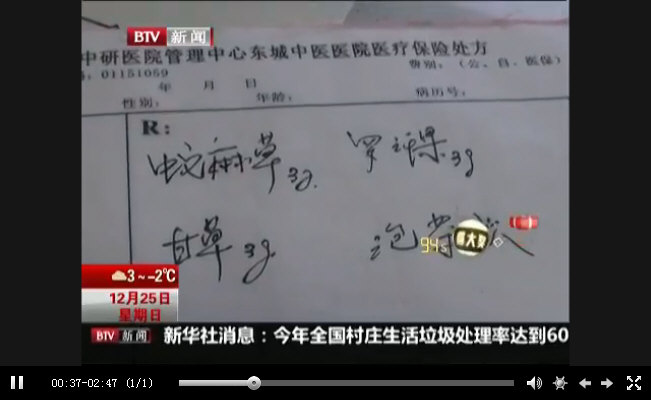 BTV 新闻
中研医院管理中心东城中医医院医疗保险处方
号：01151059 费别：（公、自、医保）
年 月 日
性别： 年龄： 病历号：
R：
蛇麻草 3g 罗汉果 3g
甘草 3g 泡
94s
3～-2℃
12月25日
星期日
BTV 新闻 新华社消息：今年全国村庄生活垃圾处理率达到60
00:37-02:47 (1/1)